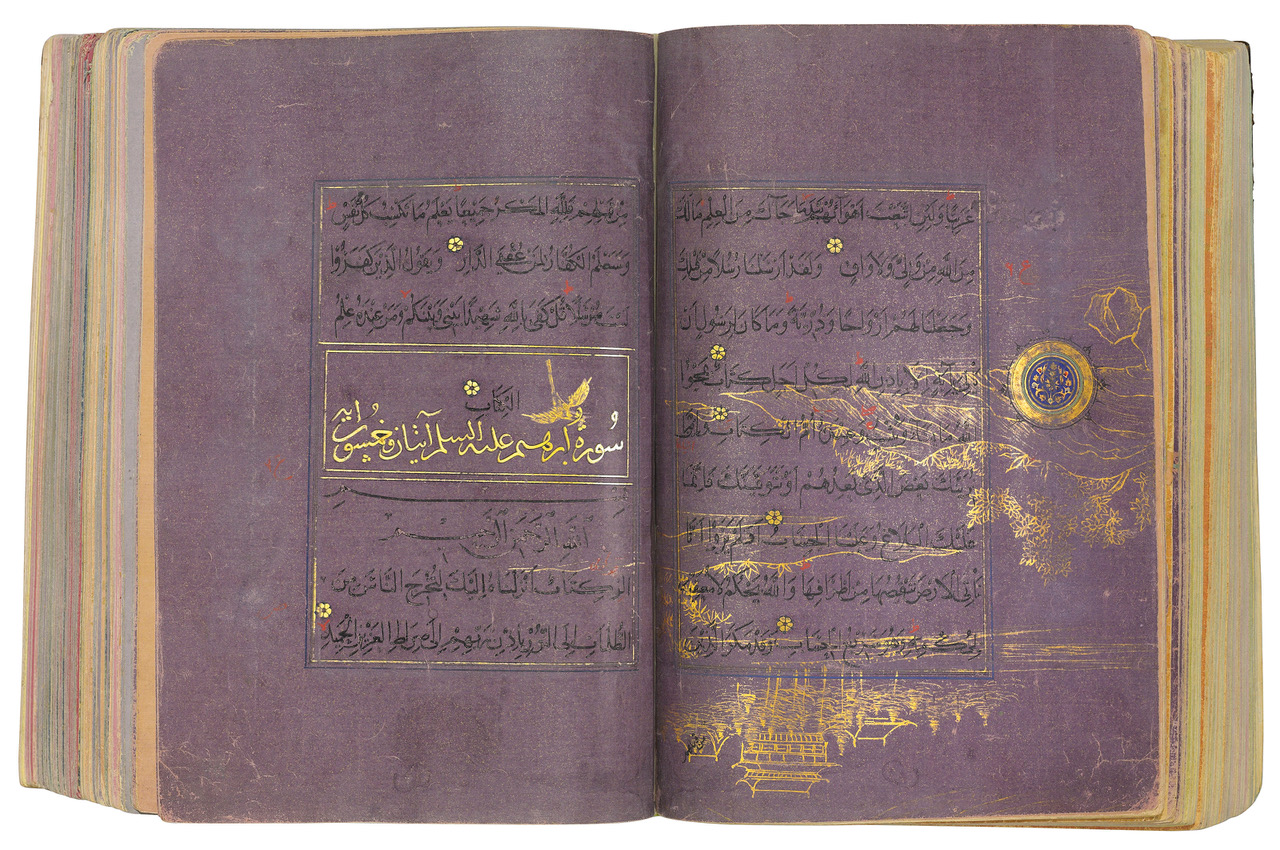 عَرَبِيًّا وَلَئِنِ اتَّبَعْتَ اَهْوَاءَهُمْ بَعْدَ مَا جَاءَكَ مِنَ الْعِلْمِ مَا لَكَ
مِنَ اللّٰهِ مِنْ وَلِيٍّ وَلَا وَاقٍ وَلَقَدْ اَرْسَلْنَا رُسُلًا مِنْ قَبْلِكَ
وَجَعَلْنَا لَهُمْ اَزْوَاجًا وَذُرِّيَّةً وَمَا كَانَ لِرَسُولٍ اَنْ
يَأْتِيَ بِآيَةٍ اِلَّا بِاِذْنِ اللّٰهِ لِكُلِّ اَجَلٍ كِتَابٌ يَمْحُوا
اللّٰهُ مَا يَشَاءُ وَيُثْبِتُ وَعِنْدَهُ اُمُّ الْكِتَابِ وَاِنْ مَا
نُرِيَنَّكَ بَعْضَ الَّذِي نَعِدُهُمْ اَوْ نَتَوَفَّيَنَّكَ فَاِنَّمَا
عَلَيْكَ الْبَلَاغُ وَعَلَيْنَا الْحِسَابُ اَوَلَمْ يَرَوْا اَنَّا
نَأْتِي الْاَرْضَ نَنْقُصُهَا مِنْ اَطْرَافِهَا وَاللّٰهُ يَحْكُمُ لَا مُعَقِّبَ
لِحُكْمِهِ وَهُوَ سَرِيعُ الْحِسَابِ وَقَدْ مَكَرَ الَّذِينَ
مِنْ قَبْلِهِمْ فَلِلّٰهِ الْمَكْرُ جَمِيعًا يَعْلَمُ مَا تَكْسِبُ كُلُّ نَفْسٍ
وَسَيَعْلَمُ الْكُفَّارُ لِمَنْ عُقْبَى الدَّارِ وَيَقُولُ الَّذِينَ كَفَرُوا
لَسْتَ مُرْسَلًا قُلْ كَفَى بِاللّٰهِ شَهِيدًا بَيْنِي وَبَيْنَكُمْ وَمَنْ عِنْدَهُ عِلْمُ
الْكِتَابِ
سُورَةُ ابرهيم عليه السلم اثنان وخمسون اية
بِسْمِ
اللّٰهِ الرَّحْمٰنِ الرَّحِيمِ
الر كِتَابٌ اَنْزَلْنَاهُ اِلَيْكَ لِتُخْرِجَ النَّاسَ مِنَ
الظُّلُمَاتِ اِلَى النُّورِ بِاِذْنِ رَبِّهِمْ اِلَى صِرَاطِ الْعَزِيزِ الْحَمِيدِ